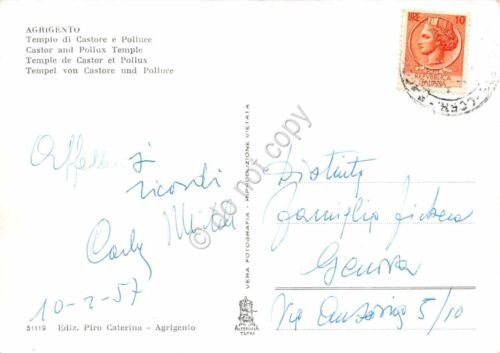 AGRIGENTO
Tempio di Castore e Polluce
Castor and Pollux Temple
Temple de Castor et Pollux
Tempel von Castore und Polluce
LIRE 10
REPVBBLICA
ITALIANA
ricordi
10-2-57
51119 Ediz. Piro Caterina - Agrigento
VERA FOTOGRAFIA - RIPRODUZIONE VIETATA
© do not copy
Distinta
famiglia
Genova
Via 5/10